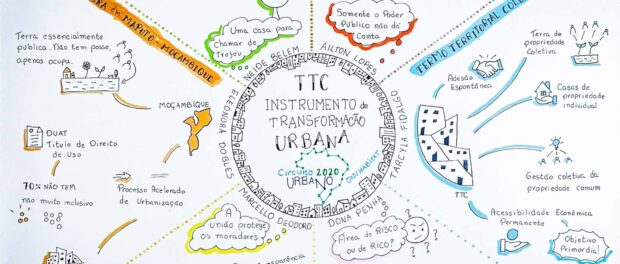 TERRA em MAPUTO-MOÇAMBIQUE
Terra essencialmente
publica. Não tem posse,
apenas ocupa.
MOÇAMBIQUE
DUAT
Titulo de Direito
de Uso
70% NÃO TEM
não muito inclusivo
Processo Acelerado
de Urbanização
Uma casa para
Chamar de
Trojeu
Somente o Poder
Publico não da
Conta
NEIDE BELEM
AILTON LOPES
ELEONORA NOBLES
TARCYLA FIDALGO
MARCELLO DEODORO
DONA PENHA
TTC
INSTRUMENTO de
TRANSFORMAÇÃO
URBANA
Circuito 2020
URBANO
ONU HABITAT
A
união protege
os moradores
Área de RISCO
ou de RICO?
TERMO TERRITORIAL COLE
Adesão
Espontânea
Terra de
propriedade
Coletiva
Casas de
propriedade
individual
TTC
Gestão coletiva da
propriedade comum
Acessibilidade Econômica
Permanente
Objetivo
Primordial